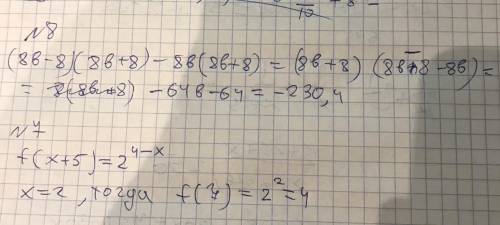 10
№8
(8b-8)(8b+8)-8b(8b+8)=(8b+8)(8b-8-8b)=
= -64b-64=-230,4
№7
f(x+5)=2^{4-x}
x=2, тогда f(7)=2^2=4